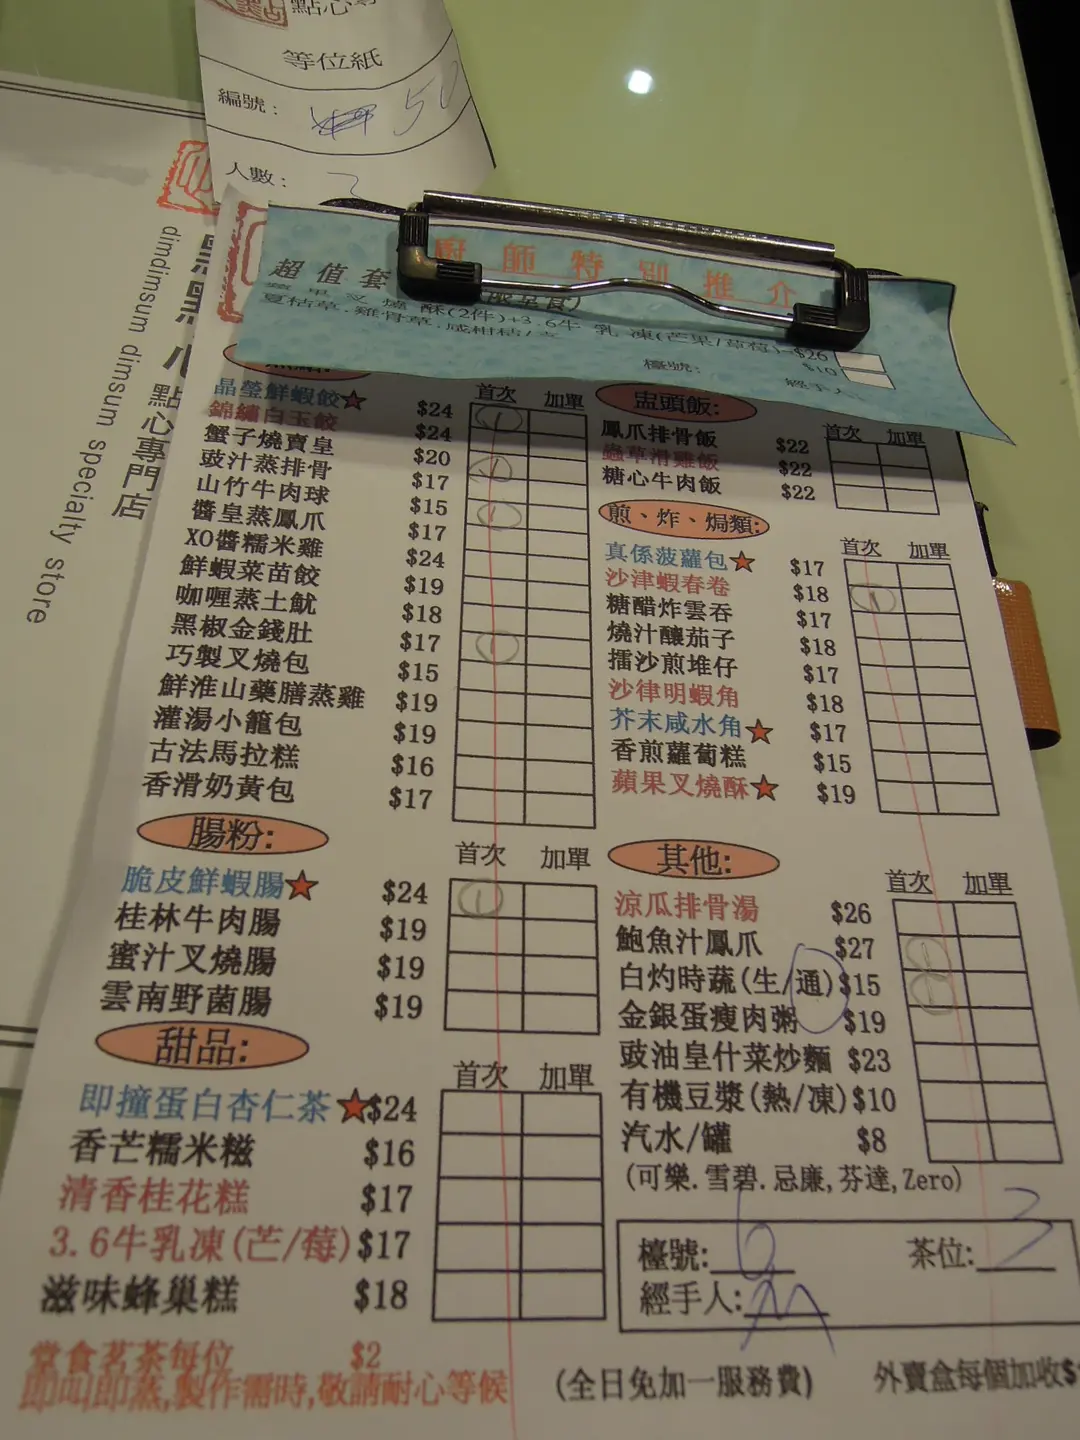 點心
等位紙
編號: 50
人數: 2
點心專門店
dimdimsum dimsum specialty store
廚師特別推介
超值套
酥(2件)+3.6牛乳凍(芒果/草莓)-$26
夏枯草.雞骨草.咸柑桔/ $10
檯號: 經手人
首次 加單
晶瑩鮮蝦餃★ $24
錦繡白玉餃 $24
蟹子燒賣皇 $20
豉汁蒸排骨 $17
山竹牛肉球 $15
醬皇蒸鳳爪 $17
XO醬糯米雞 $24
鮮蝦菜苗餃 $19
咖喱蒸土魷 $18
黑椒金錢肚 $17
巧製叉燒包 $15
鮮淮山藥膳蒸雞 $19
灌湯小籠包 $19
古法馬拉糕 $16
香滑奶黃包 $17
腸粉: 首次 加單
脆皮鮮蝦腸★ $24
桂林牛肉腸 $19
蜜汁叉燒腸 $19
雲南野菌腸 $19
甜品: 首次 加單
即撞蛋白杏仁茶★$24
香芒糯米糍 $16
清香桂花糕 $17
3.6牛乳凍(芒/莓)$17
滋味蜂巢糕 $18
堂食茗茶每位 $2
即叫即蒸,製作需時,敬請耐心等候
盅頭飯: 首次 加單
鳳爪排骨飯 $22
蟲草滑雞飯 $22
糖心牛肉飯 $22
煎、炸、焗類: 首次 加單
真係菠蘿包★ $17
沙津蝦春卷 $18
糖醋炸雲吞 $17
燒汁釀茄子 $18
擂沙煎堆仔 $17
沙律明蝦角 $18
芥末咸水角★ $17
香煎蘿蔔糕 $15
蘋果叉燒酥★ $19
其他: 首次 加單
涼瓜排骨湯 $26
鮑魚汁鳳爪 $27
白灼時蔬(生/通)$15
金銀蛋瘦肉粥 $19
豉油皇什菜炒麵 $23
有機豆漿(熱/凍)$10
汽水/罐 $8
(可樂.雪碧.忌廉,芬達,Zero)
檯號: 6 茶位: 2
經手人:
(全日免加一服務費)
外賣盒每個加收$